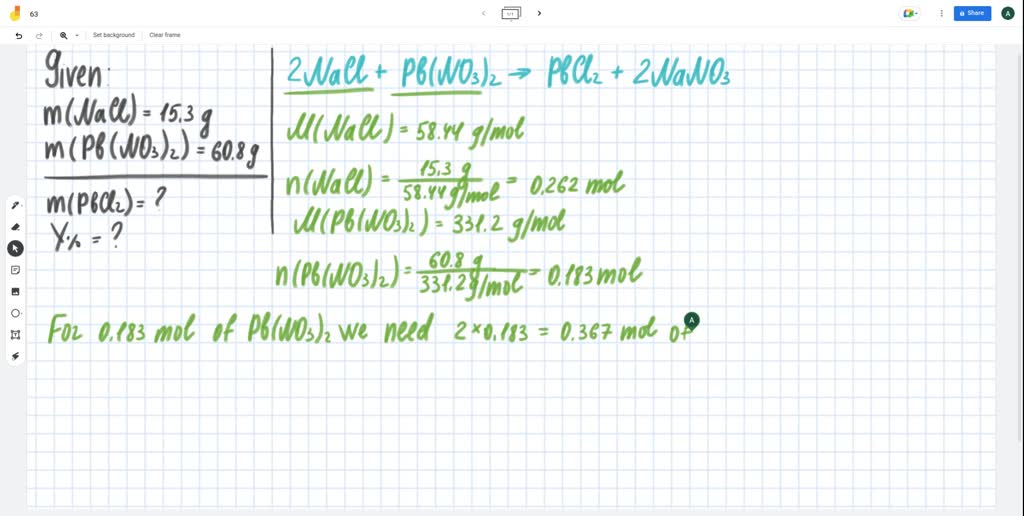 63
1/1
Share
A
Set background
Clear frame
Given:
m(NaCl) = 15.3 g
m(Pb(NO3)2) = 60.8 g
m(PbCl2) = ?
Y% = ?
2NaCl + Pb(NO3)2 → PbCl2 + 2NaNO3
M(NaCl) = 58.44 g/mol
n(NaCl) = 15.3 g / 58.44 g/mol = 0.262 mol
M(Pb(NO3)2) = 331.2 g/mol
n(Pb(NO3)2) = 60.8 g / 331.2 g/mol = 0.183 mol
For 0.183 mol of Pb(NO3)2 we need 2×0.183 = 0.367 mol of
A